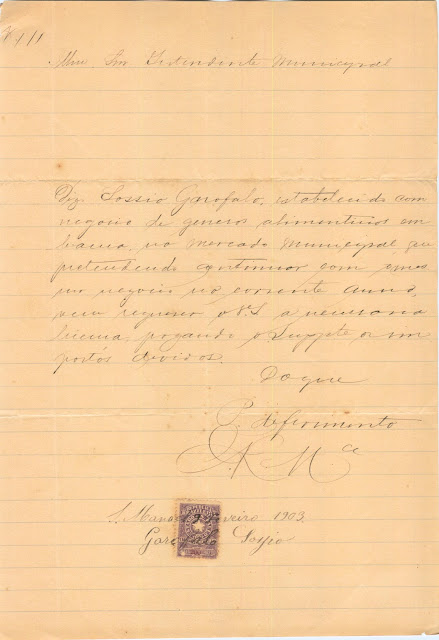 Nº 11
Mui Snr Intendente Municipal
Diz Sossio Garofalo, estabelecido com
negocio de generos alimenticios em
banca, no mercado Municypal que
pretendendo continuar com
no negocio no corrente anno,
vem requerer a necessaria
licença, pagando o Suppte os im
postos devidos.
Do que
P. deferimento
S. Manoel 1903.
Garofalo Sossio